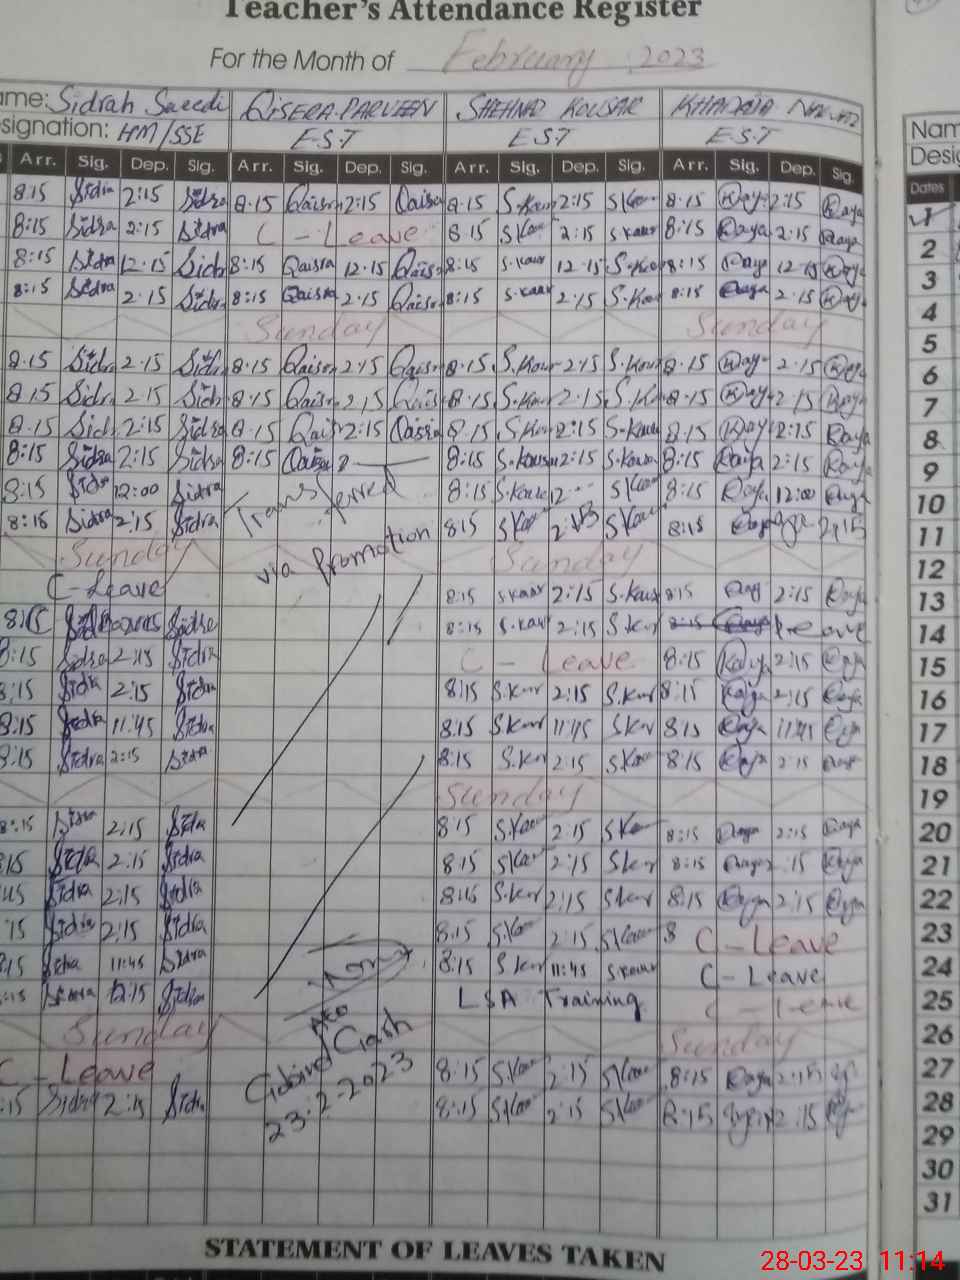 Teacher's Attendance Register
For the Month of February 2023
ame: Sidrah Saeedi QISERA PARVEEN SHEHNAZ KOUSAR KHADAIA
signation: HM/SSE E.S.T E.S.T E.S.T Nam
Desig
Arr. Sig. Dep. Sig. Arr. Sig. Dep. Sig. Arr. Sig. Dep. Sig. Arr. Sig. Dep. Sig. Dates
8:15 Sidra 2:15 Sidra 8:15 Qaisra 2:15 Qaisra 8:15 S.Kour 2:15 S.Kour 8:15 Raya 2:15 Raya 1
8:15 Sidra 2:15 Sidra C - Leave 8:15 2:15 S Kaur 8:15 Raya 2:15 Raya 2
8:15 Sidra 12:15 Sidr 8:15 Qaisra 12:15 Qaisr 8:15 S.Kaur 12:15 S.Kou 8:15 Raya 12:15 Ray 3
8:15 Sidra 2:15 Sidra 8:15 Qaisra 2:15 Qaisr 8:15 S.Kaur 2:15 S.Kou 8:15 Raya 2:15 Ray 4
Sunday Sunday 5
8:15 Sidr 2:15 Sidr 8:15 Qaisr 2:15 Qaisr 8:15 S.Kour 2:15 S.Kour 8:15 Ray 2:15 Ray 6
8:15 Sidr 2:15 Sidr 8:15 Qaisr 2:15 Qais 8:15 S.Kour 2:15 S.Ko 8:15 Ray 2:15 Raya 7
8:15 Sidr 2:15 Sidra 8:15 Qais 2:15 Qaisra 8:15 S.Kour 2:15 S.Kour 8:15 Ray 2:15 Raya 8
8:15 Sidra 2:15 Sidra 8:15 Qaisra 8:15 S.Kousar 2:15 S.Kousa 8:15 Raya 2:15 Raya 9
8:15 Sidra 12:00 Sidra Transferred 8:15 S.Kousa 12 8:15 Raya 12:00 Raya 10
8:15 Sidra 2:15 Sidra via Promotion 8:15 2:15 8:15 2:15 11
Sunday Sunday 12
C-Leave 8:15 S Kaur 2:15 S.Kaur 8:15 Ray 2:15 Raya 13
8:15 Sidra 8:15 S.Kaur 2:15 S.Kr 8:15 Leave 14
8:15 Sidra 2:15 Sidra C - Leave 8:15 Raya 2:15 Raya 15
8:15 Sidra 2:15 Sidra 8:15 S.Kour 2:15 S.Kour 8:15 Raya 2:15 Raya 16
8:15 Sidra 11:45 Sidra 8:15 S.Kour 11:45 S.Kour 8:15 Raya 11:45 Raya 17
8:15 Sidra 2:15 Sidra 8:15 S.Kr 2:15 8:15 Raya 2:15 Raya 18
Sunday 19
8:15 Sidra 2:15 Sidra 8:15 S.Kour 2:15 8:15 Raya 2:15 Raya 20
:15 Sidra 2:15 Sidra 8:15 S.Kar 2:15 8:15 Raya 2:15 Raya 21
Sidra 2:15 Sidra S.Kr 2:15 8:15 Raya 2:15 Raya 22
:15 Sidra 2:15 Sidra 8:15 2:15 8 C - Leave 23
8:15 Sidra 11:45 Sidra 8:15 S.Kr 11:45 S.Kour C - Leave 24
:15 Sidra 12:15 Sidra LSA Training C - Leave 25
Sunday Sunday 26
C - Leave Cash 8:15 2:15 8:15 Raya 2:15 27
:15 Sidra 2:15 Sidra 23-2-2023 8:15 2:15 8:15 2:15 28
29
30
31
STATEMENT OF LEAVES TAKEN
28-03-23 11:14